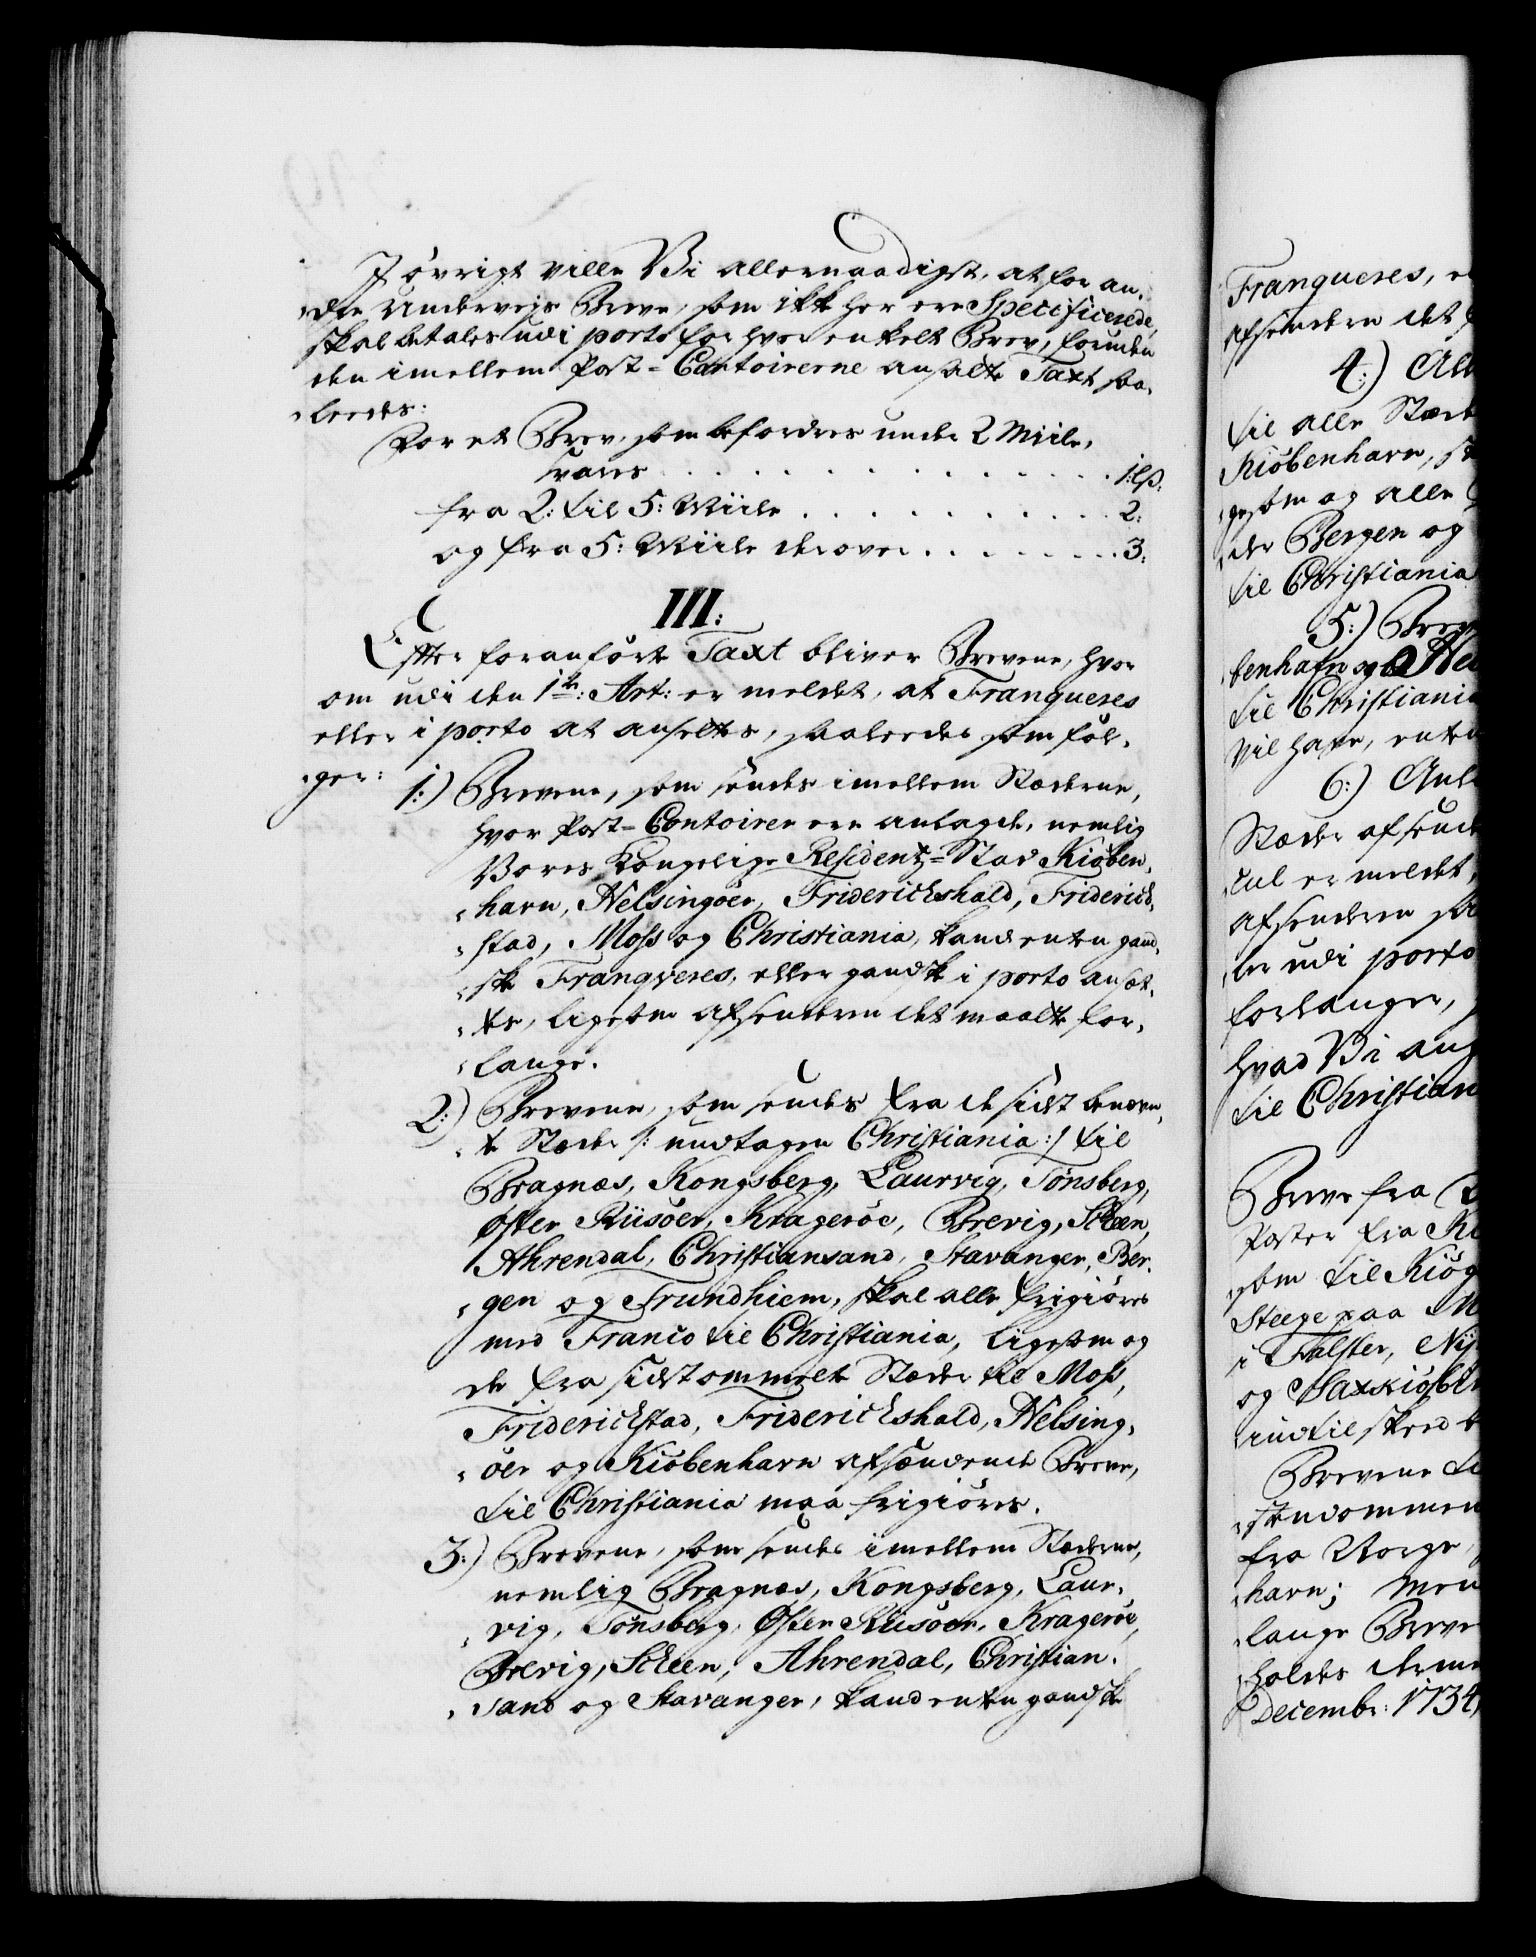 I øvrigt ville Vi allernaadigst, at for an-
dre Underveis Breve, som ikke her ere Specificerede,
skal betales udi porto for hver enkelt Brev, foruden
den imellem Post-Contoirerne ansatte Taxt saa-
ledes:
For et Brev, som befordres under 2 Miile,
svares . . . . . . . . . . 1:lß:
fra 2: til 5: Miile . . . . . . . . . . 2:
og fra 5: Miile derover . . . . . . . . 3:
III:
Efter foranførte Taxt bliver Brevene, hvor
om udi den 1te: Art: er meldet, at Franqueres
eller i porto at ansettes, saaledes som føl-
ger:
1:) Brevene, som sendes imellem Stæderne,
hvor Post-Contoirer ere anlagde, nemlig
Vores Kongelige Residentz-Stad Kiøben-
havn, Helsingøer, Friderichshald, Friderich-
stad, Moss og Christiania, kand enten gand-
ske Franqveres, eller gandske i porto ansæt-
tes, ligesom Afsenderen det maatte for-
lange.
2:) Brevene, som sendes fra de sidst benævn-
te Stæder /: undtagen Christiania :/ til
Bragnæs, Kongsberg, Laurvig, Tønsberg,
Øster Riisøer, Kragerøe, Brevig, Scheen,
Ahrendal, Christiansand, Stavanger, Ber-
gen og Trundhiem, skal alle frigiøres
med Franco til Christiania, ligesom og
de fra sidstommelte Stæder til Moss,
Friderichstad, Friderichshald, Helsing-
øer og Kiøbenhavn afsændende Breve,
til Christiania maa frigiøres.
3:) Brevene, som sendes imellem Stæderne,
nemlig Bragnæs, Kongsberg, Laur-
vig, Tønsberg, Øster Riisøer, Kragerøe,
Brevig, Scheen, Ahrendal, Christian-
sand og Stavanger, kand enten gandske
Franqueres, e
afsenderen det
4:) All
til alle Stæde
Kiøbenhavn, s
gesom og alle
de Bergen og
til Christiania
5:) Brev
benhafn og Hel
til Christiania
vil have, enten
6:)
Stæder afsend
cul er meldet,
afsenderen sa
ler udi porto
forlanger,
hvad Vi ang
til Christian
Breve fra
Poster fra Ki
som til Kiøg
Steege paa M
i Falster, Ny
og Saxkiøbin
indtil skeed
Brevene ti
fra Norge,
havn; men
lange Breve
holdes derme
Decembr: 1734